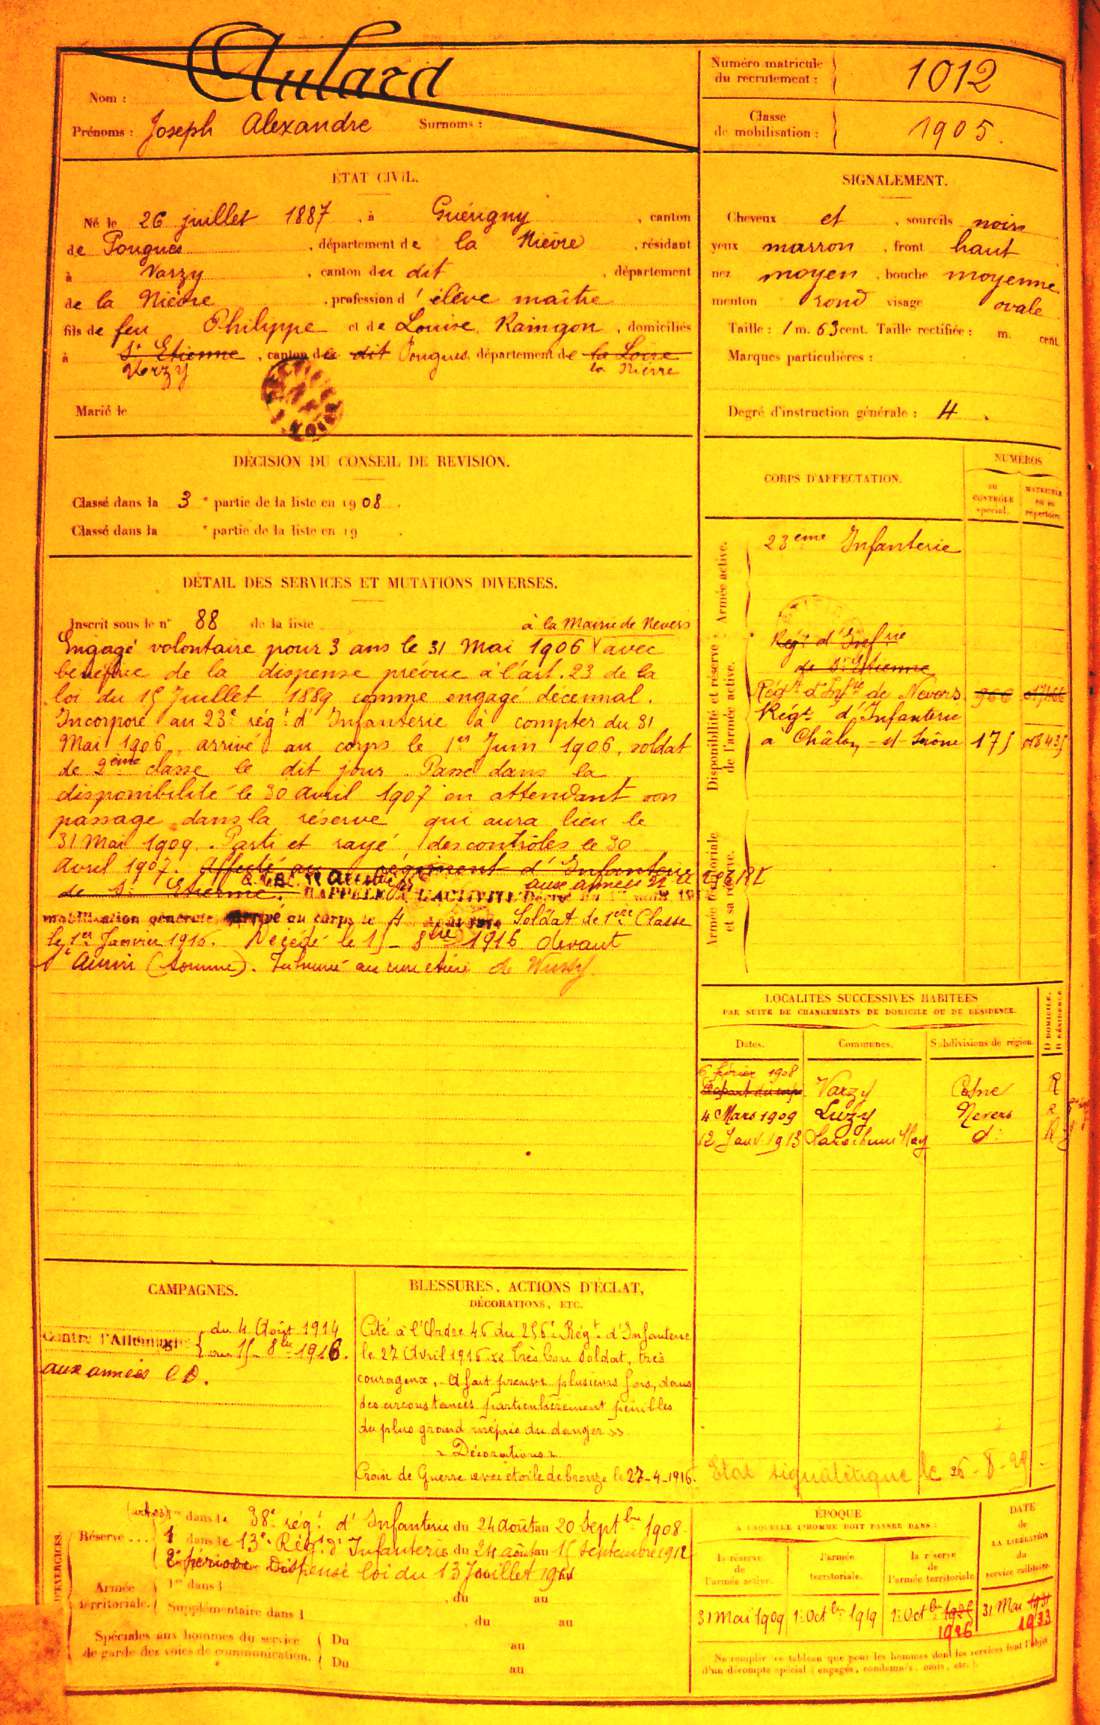 Nom : Aulard
Prénoms : Joseph Alexandre Surnoms :
Numéro matricule du recrutement : 1012
Classe de mobilisation : 1905.
ÉTAT CIVIL.
Né le 26 juillet 1887, à Guérigny, canton
de Pougues, département de la Nièvre, résidant
à Varzy, canton du dit, département
de la Nièvre, profession d'élève maître
fils de feu Philippe et de Louise Raingon, domiciliés
à St Etienne, canton de dit Pougues, département de la Loire
Varzy la Nièvre
Marié le
SIGNALEMENT.
Cheveux et, sourcils noirs
yeux marron, front haut
nez moyen, bouche moyenne
menton rond visage ovale
Taille : 1 m. 63 cent. Taille rectifiée : m. cent.
Marques particulières :
Degré d'instruction générale : 4.
DÉCISION DU CONSEIL DE REVISION.
Classé dans la 3e partie de la liste en 1908.
Classé dans la e partie de la liste en 19
CORPS D'AFFECTATION.
NUMÉROS
au contrôle spécial.
matricule ou au répertoire.
Armée active.
23ème Infanterie
Disponibilité et réserve de l'armée active.
Régt d'Infrie
de St Etienne
Régt d'Infie de Nevers
Régt d'Infanterie
à Châlon-s/-Saône 175
Armée territoriale et sa réserve.
DÉTAIL DES SERVICES ET MUTATIONS DIVERSES.
Inscrit sous le n° 88 de la liste à la Mairie de Nevers
Engagé volontaire pour 3 ans le 31 Mai 1906 avec
bénéfice de la dispense prévue à l'art. 23 de la
loi du 15 Juillet 1889 comme engagé décennal.
Incorporé au 23e rég. d'Infanterie à compter du 31
Mai 1906, arrivé au corps le 1er Juin 1906, soldat
de 2ème classe le dit jour. Passé dans la
disponibilité le 30 avril 1907 en attendant son
passage dans la réserve qui aura lieu le
31 Mai 1909. Parti et rayé des contrôles le 30
avril 1907. Affecté au régiment d'Infanterie
de St Etienne. RAPPELÉ A L'ACTIVITÉ
aux armées
mobilisation générale Arrivé au corps le 4 Soldat de 1ère Classe
le 1er Janvier 1916. Décédé le 15 8bre 1916 devant
(Somme). Inhumé au cimetière de
LOCALITÉS SUCCESSIVES HABITÉES
PAR SUITE DE CHANGEMENTS DE DOMICILE OU DE RÉSIDENCE.
Dates. Communes. Subdivisions de région. D domicile. R résidence.
6 février 1908 Varzy Cosne R
Départ du corps
4 Mars 1909 Luzy Nevers R
12 Janv 1913 Larochemillay d° R
CAMPAGNES.
Contre l'Allemagne du 4 Août 1914
au 15 8bre 1916.
aux armées CD.
BLESSURES, ACTIONS D'ÉCLAT,
DÉCORATIONS, ETC.
Cité à l'Ordre 46 du 256e Régt d'Infanterie
le 27 Avril 1916 « Très bon soldat, très
courageux. A fait preuve plusieurs fois, dans
des circonstances particulièrement pénibles
du plus grand mépris du danger »
« Décorations »
Croix de Guerre avec étoile de bronze le 27-4-1916.
Etat signalétique le 26-8-29
Réserve dans le 38e rég. d'Infanterie du 24 août au 20 Septbre 1908
1 dans le 13e Régt d'Infanterie du 24 août au 15 Septembre 1912
2e période Dispensé loi du 13 Juillet
Armée territoriale. 1re dans l , du au
Supplémentaire dans l , du au
Spéciales aux hommes du service de garde des voies de communication.
Du au
Du au
ÉPOQUE
A LAQUELLE L'HOMME DOIT PASSER DANS :
la réserve de l'armée active.
l'armée territoriale.
la réserve de l'armée territoriale.
DATE de LA LIBÉRATION du service militaire.
31 Mai 1909 1er Octbre 1919 1er Octbre 1925 31 Mai 1931
1926 1933
Ne remplir ce tableau que pour les hommes dont les services font l'objet
d'un décompte spécial (engagés, condamnés, omis, etc.).